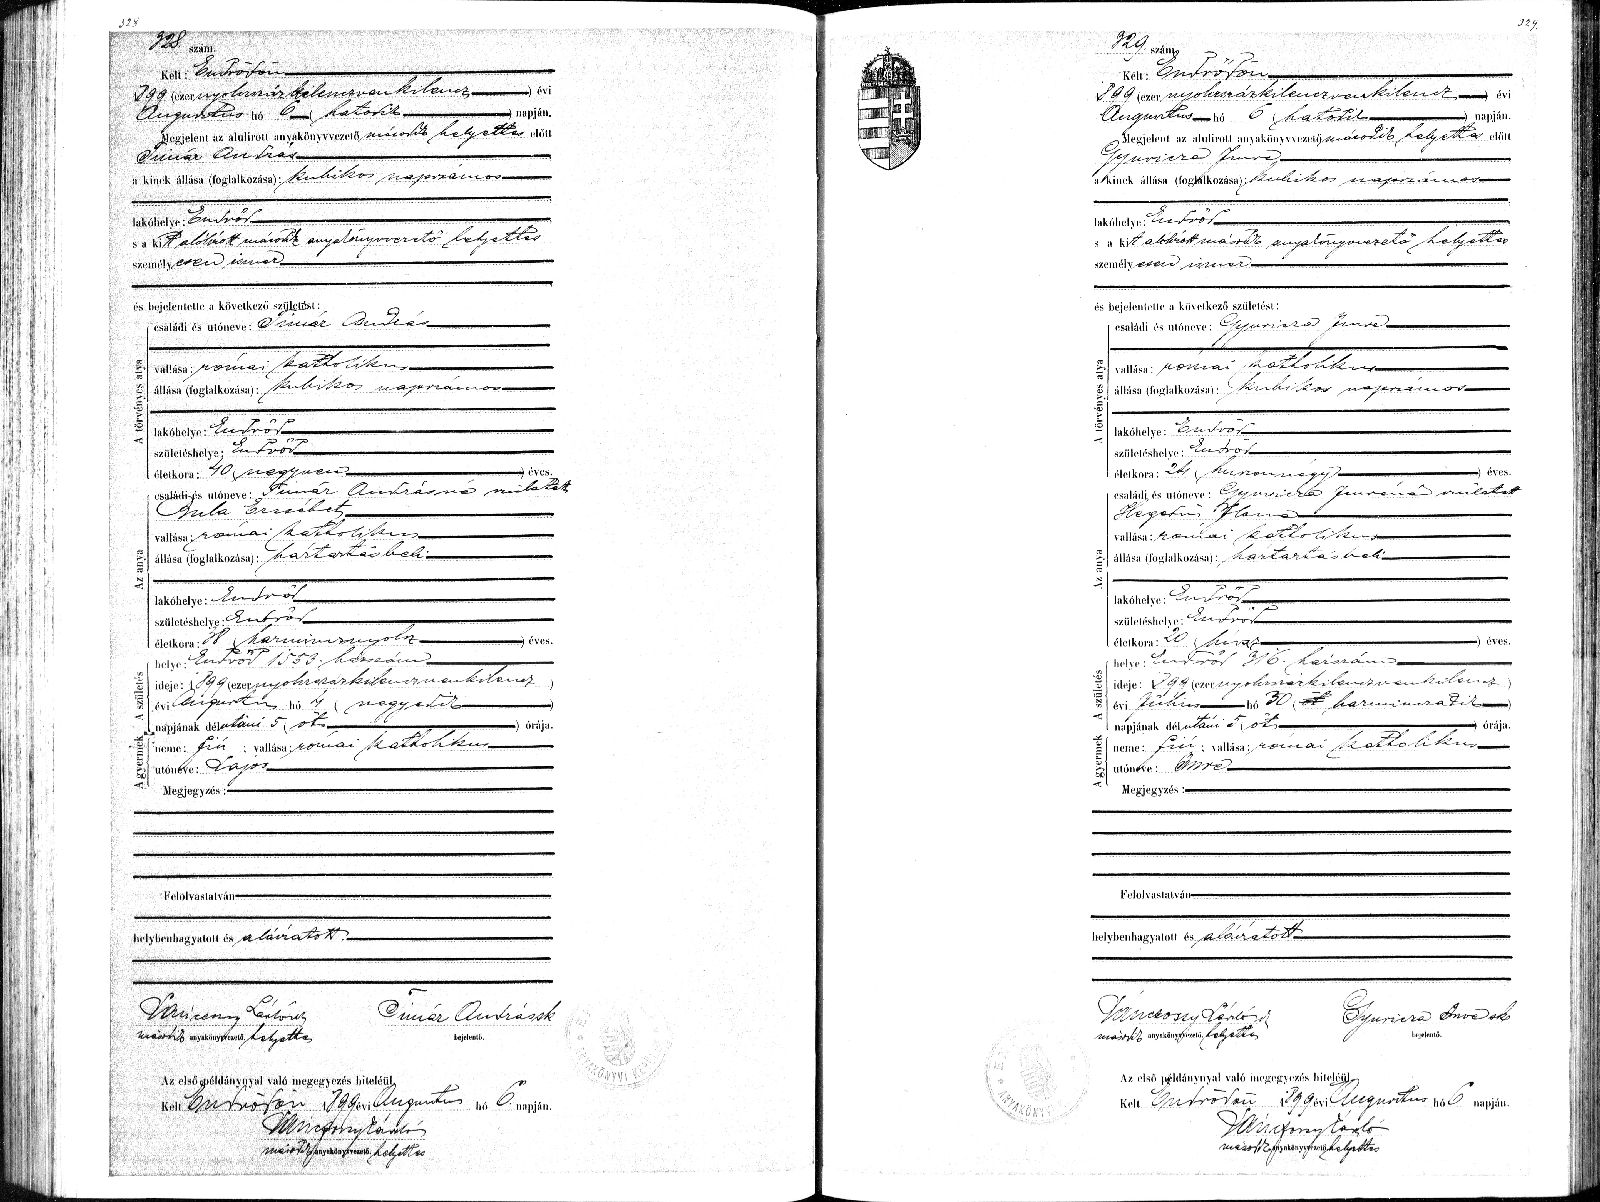 328
328. szám.
Kelt: Endrődön
1899 (ezer nyolcszázkilenczvenkilencz) évi
Augusztus hó 6 (hatodik) napján.
Megjelent az alulirott anyakönyvvezető második helyettes előtt
Timár András
a kinek állása (foglalkozása): kubikos napszámos
lakóhelye: Endrőd
s a kit alólirott második anyakönyvvezető helyettes
személyesen ismer
és bejelentette a következő születést:
A törvényes atya
családi és utóneve: Timár András
vallása: római katholikus
állása (foglalkozása): kubikos napszámos
lakóhelye: Endrőd
születéshelye: Endrőd
életkora: 40 (negyven) éves.
Az anya
családi és utóneve: Timár Andrásné született
Gula Erzsébet
vallása: római katholikus
állása (foglalkozása): háztartásbeli
lakóhelye: Endrőd
születéshelye: Endrőd
életkora: 38 (harmincznyolcz) éves.
A születés
helye: Endrőd 1553. házszám
ideje: 1899 (ezer nyolcszázkilenczvenkilencz)
évi Augusztus hó 4 (negyedik)
napjának délutáni 5 (öt) órája.
A gyermek
neme: fiú; vallása: római katholikus
utóneve: Lajos
Megjegyzés:
Felolvastatván
helybenhagyatott és aláiratott.
László Timár András sk
második anyakönyvvezető helyettes bejelentő.
Az első példánynyal való megegyezés hiteléül
Kelt Endrődön 1899 évi Augusztus hó 6. napján.
László
második anyakönyvvezető helyettes
329.
329. szám.
Kelt: Endrődön
1899 (ezer nyolcszázkilenczvenkilencz) évi
Augusztus hó 6 (hatodik) napján.
Megjelent az alulirott anyakönyvvezető második helyettes előtt
Gyuricza Imre
a kinek állása (foglalkozása): kubikos napszámos
lakóhelye: Endrőd
s a kit alólirott második anyakönyvvezető helyettes
személyesen ismer
és bejelentette a következő születést:
A törvényes atya
családi és utóneve: Gyuricza Imre
vallása: római katholikus
állása (foglalkozása): kubikos napszámos
lakóhelye: Endrőd
születéshelye: Endrőd
életkora: 24 (huszonnégy) éves.
Az anya
családi és utóneve: Gyuricza Imréné született
Hegedűs Ilona
vallása: római katholikus
állása (foglalkozása): háztartásbeli
lakóhelye: Endrőd
születéshelye: Endrőd
életkora: 20 (húsz) éves.
A születés
helye: Endrőd 316. házszám
ideje: 1899 (ezer nyolcszázkilenczvenkilencz)
évi Július hó 30 (harminczadik)
napjának délutáni 5 (öt) órája.
A gyermek
neme: fiú; vallása: római katholikus
utóneve: Imre
Megjegyzés:
Felolvastatván
helybenhagyatott és aláiratott
László Gyuricza Imre sk
második anyakönyvvezető helyettes bejelentő.
Az első példánynyal való megegyezés hiteléül
Kelt Endrődön 1899 évi Augusztus hó 6 napján.
László
második anyakönyvvezető helyettes